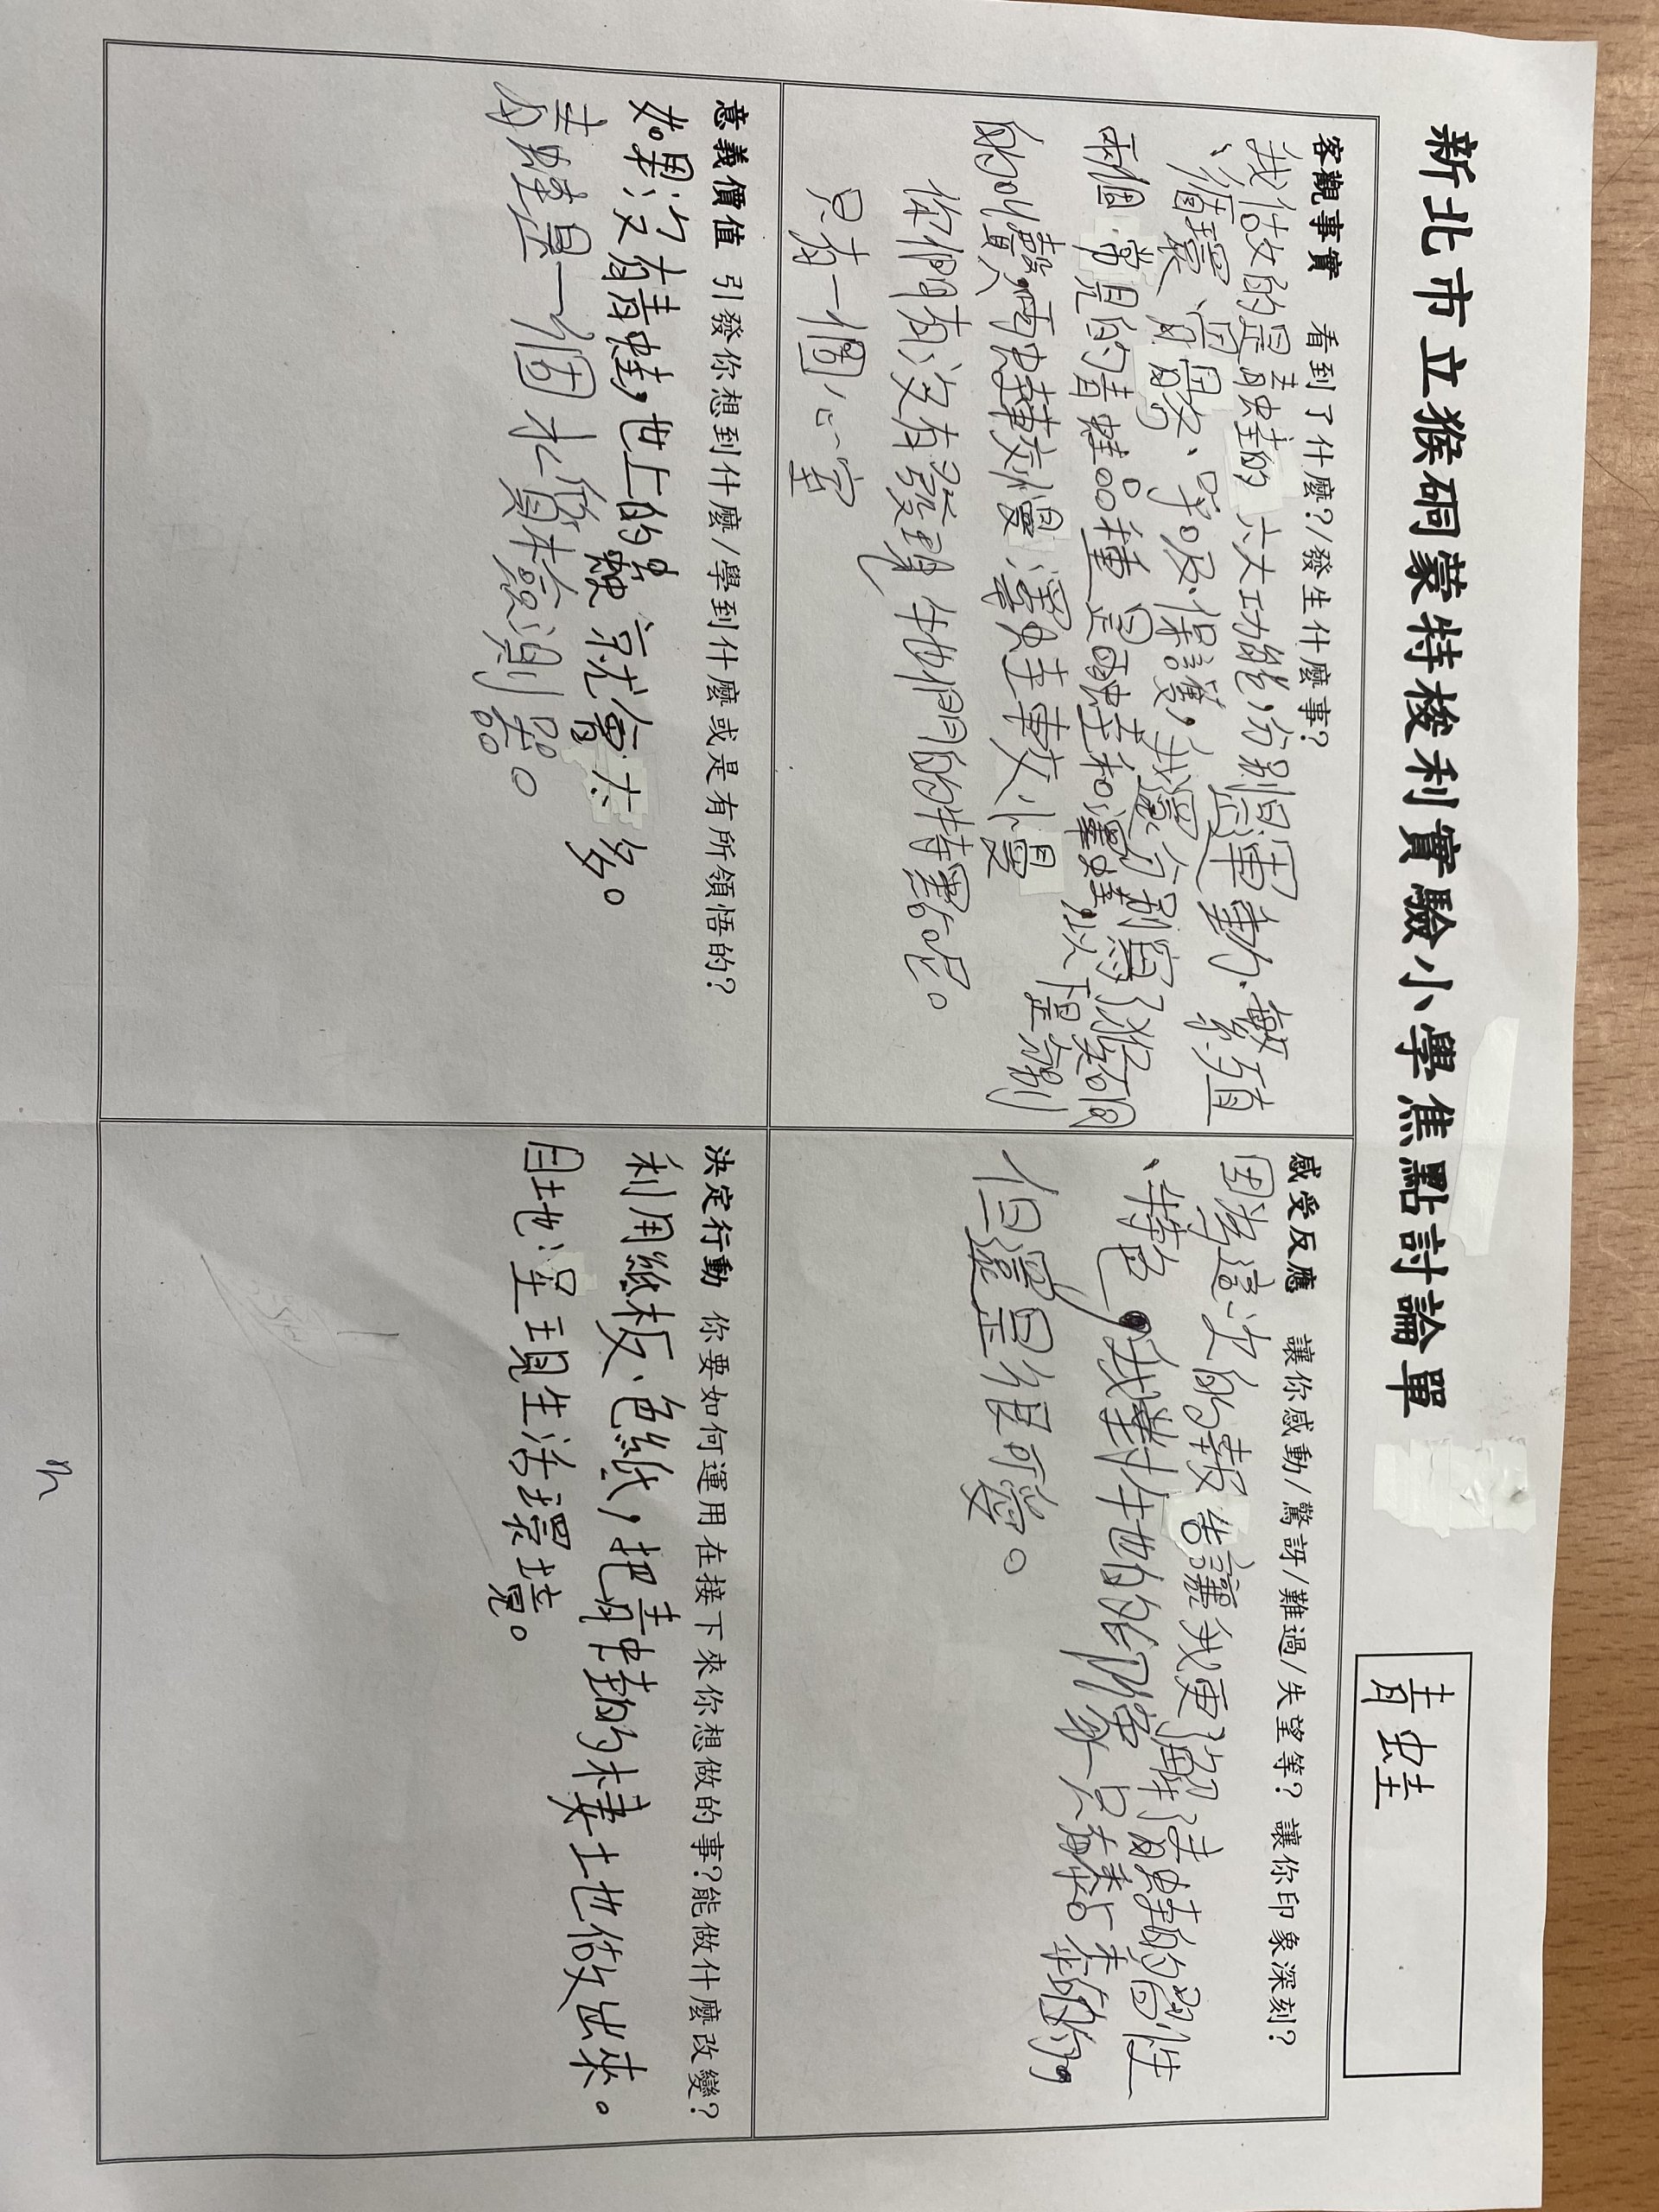 新北市立猴硐蒙特梭利實驗小學焦點討論單
青蛙
客觀事實 看到了什麼?/發生什麼事?
我做的是青蛙的六大功能,分別是運動、繁殖
、循環、骨骼、呼吸、保護,我還分別寫了猴硐
兩個常見的青蛙品種是雨蛙和澤蛙,以下是分別
的叫聲,雨蛙較慢澤蛙較小慢
你們有沒有發現牠們的特點呢。
只有一個心室
感受反應 讓你感動/驚訝/難過/失望等? 讓你印象深刻?
因為這次的報告讓我更了解青蛙的習性
、特色,我對牠的印象只有黏黏的,
但還是很可愛。
意義價值 引發你想到什麼/學到什麼或是有所領悟的?
如果沒有青蛙,世上的蟲就會太多。
青蛙是一個水質檢測器。
決定行動 你要如何運用在接下來你想做的事?能做什麼改變?
利用紙板、色紙,把青蛙的棲地做出來。
目地:呈現生活環境。